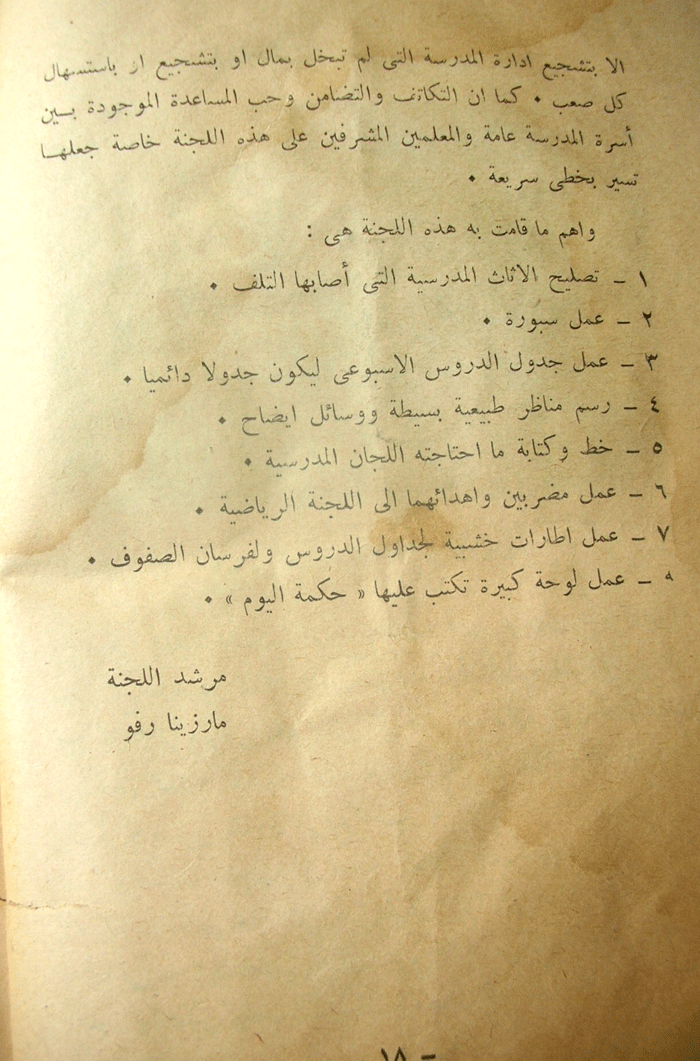 الا بتشجيع ادارة المدرسة التى لم تبخل بمال او بتشجيع از باستسهال
كل صعب • كما ان التكاتف والتضامن وحب المساعدة الموجودة بـين
أسرة المدرسة عامة والمعلمين المشرفين على هذه اللجنة خاصة جعلهـا
تسير بخطى سريعة •
واهم ما قامت به هذه اللجنة هى :
١ ـ تصليح الاثاث المدرسية التى أصابها التلف •
٢ ـ عمل سبورة •
٣ ـ عمل جدول الدروس الاسبوعى ليكون جدولا دائميا •
٤ ـ رسم مناظر طبيعية بسيطة ووسائل ايضاح •
٥ ـ خط وكتابة ما احتاجته اللجان المدرسية •
٦ ـ عمل مضربين واهدائهما الى اللجنة الرياضية •
٧ ـ عمل اطارات خشبية لجداول الدروس ولفرسان الصفوف •
٩ ـ عمل لوحة كبيرة تكتب عليها « حكمة اليوم » •
مرشد اللجنة
مارزينا رفو
ـ ١٨